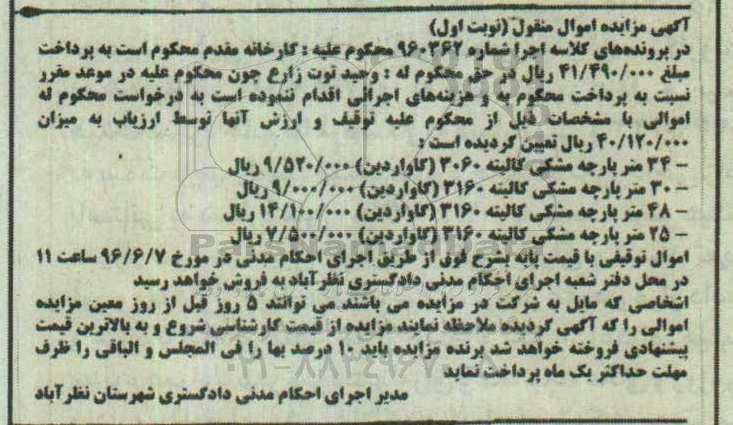 آگهی مزایده اموال منقول (نوبت اول)
در پرونده‌های کلاسه اجرا شماره ۹۶۰۳۶۲ محکوم علیه : کارخانه مقدم محکوم است به پرداخت
مبلغ ۴۱/۴۹۰/۰۰۰ ریال در حق محکوم له : وحید توت زارع چون محکوم علیه در موعد مقرر
نسبت به پرداخت محکوم به و هزینه‌های اجرائی اقدام ننموده است به درخواست محکوم له
اموالی با مشخصات ذیل از محکوم علیه توقیف و ارزش آنها توسط ارزیاب به میزان
۴۰/۱۲۰/۰۰۰ ریال تعیین گردیده است :
- ۳۴ متر پارچه مشکی کالیته ۳۰۶۰ (گاواردین) ۹/۵۲۰/۰۰۰ ریال
- ۳۰ متر پارچه مشکی کالیته ۳۱۶۰ (گاواردین) ۹/۰۰۰/۰۰۰ ریال
- ۴۸ متر پارچه مشکی کالیته ۳۱۶۰ (گاواردین) ۱۴/۱۰۰/۰۰۰ ریال
- ۲۵ متر پارچه مشکی کالیته ۳۱۶۰ (گاواردین) ۷/۵۰۰/۰۰۰ ریال
اموال توقیفی با قیمت پایه بشرح فوق از طریق اجرای احکام مدنی در مورخ ۹۶/۶/۷ ساعت ۱۱
در محل دفتر شعبه اجرای احکام مدنی دادگستری نظرآباد به فروش خواهد رسید
اشخاصی که مایل به شرکت در مزایده می باشند می توانند ۵ روز قبل از روز معین مزایده
اموالی را که آگهی گردیده ملاحظه نمایند مزایده از قیمت کارشناسی شروع و به بالاترین قیمت
پیشنهادی فروخته خواهد شد برنده مزایده باید ۱۰ درصد بها را فی المجلس و الباقی را ظرف
مهلت حداکثر یک ماه پرداخت نماید
مدیر اجرای احکام مدنی دادگستری شهرستان نظرآباد